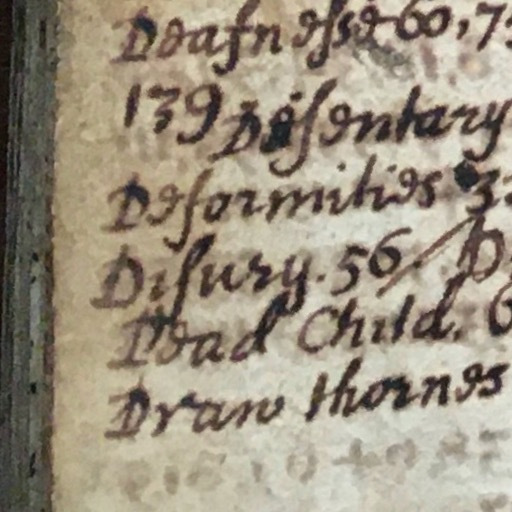 Deafnesse 60, 7
139 Disentary
Deformities 3
Disury. 56. D
Dead Child. 6
Draw thornes